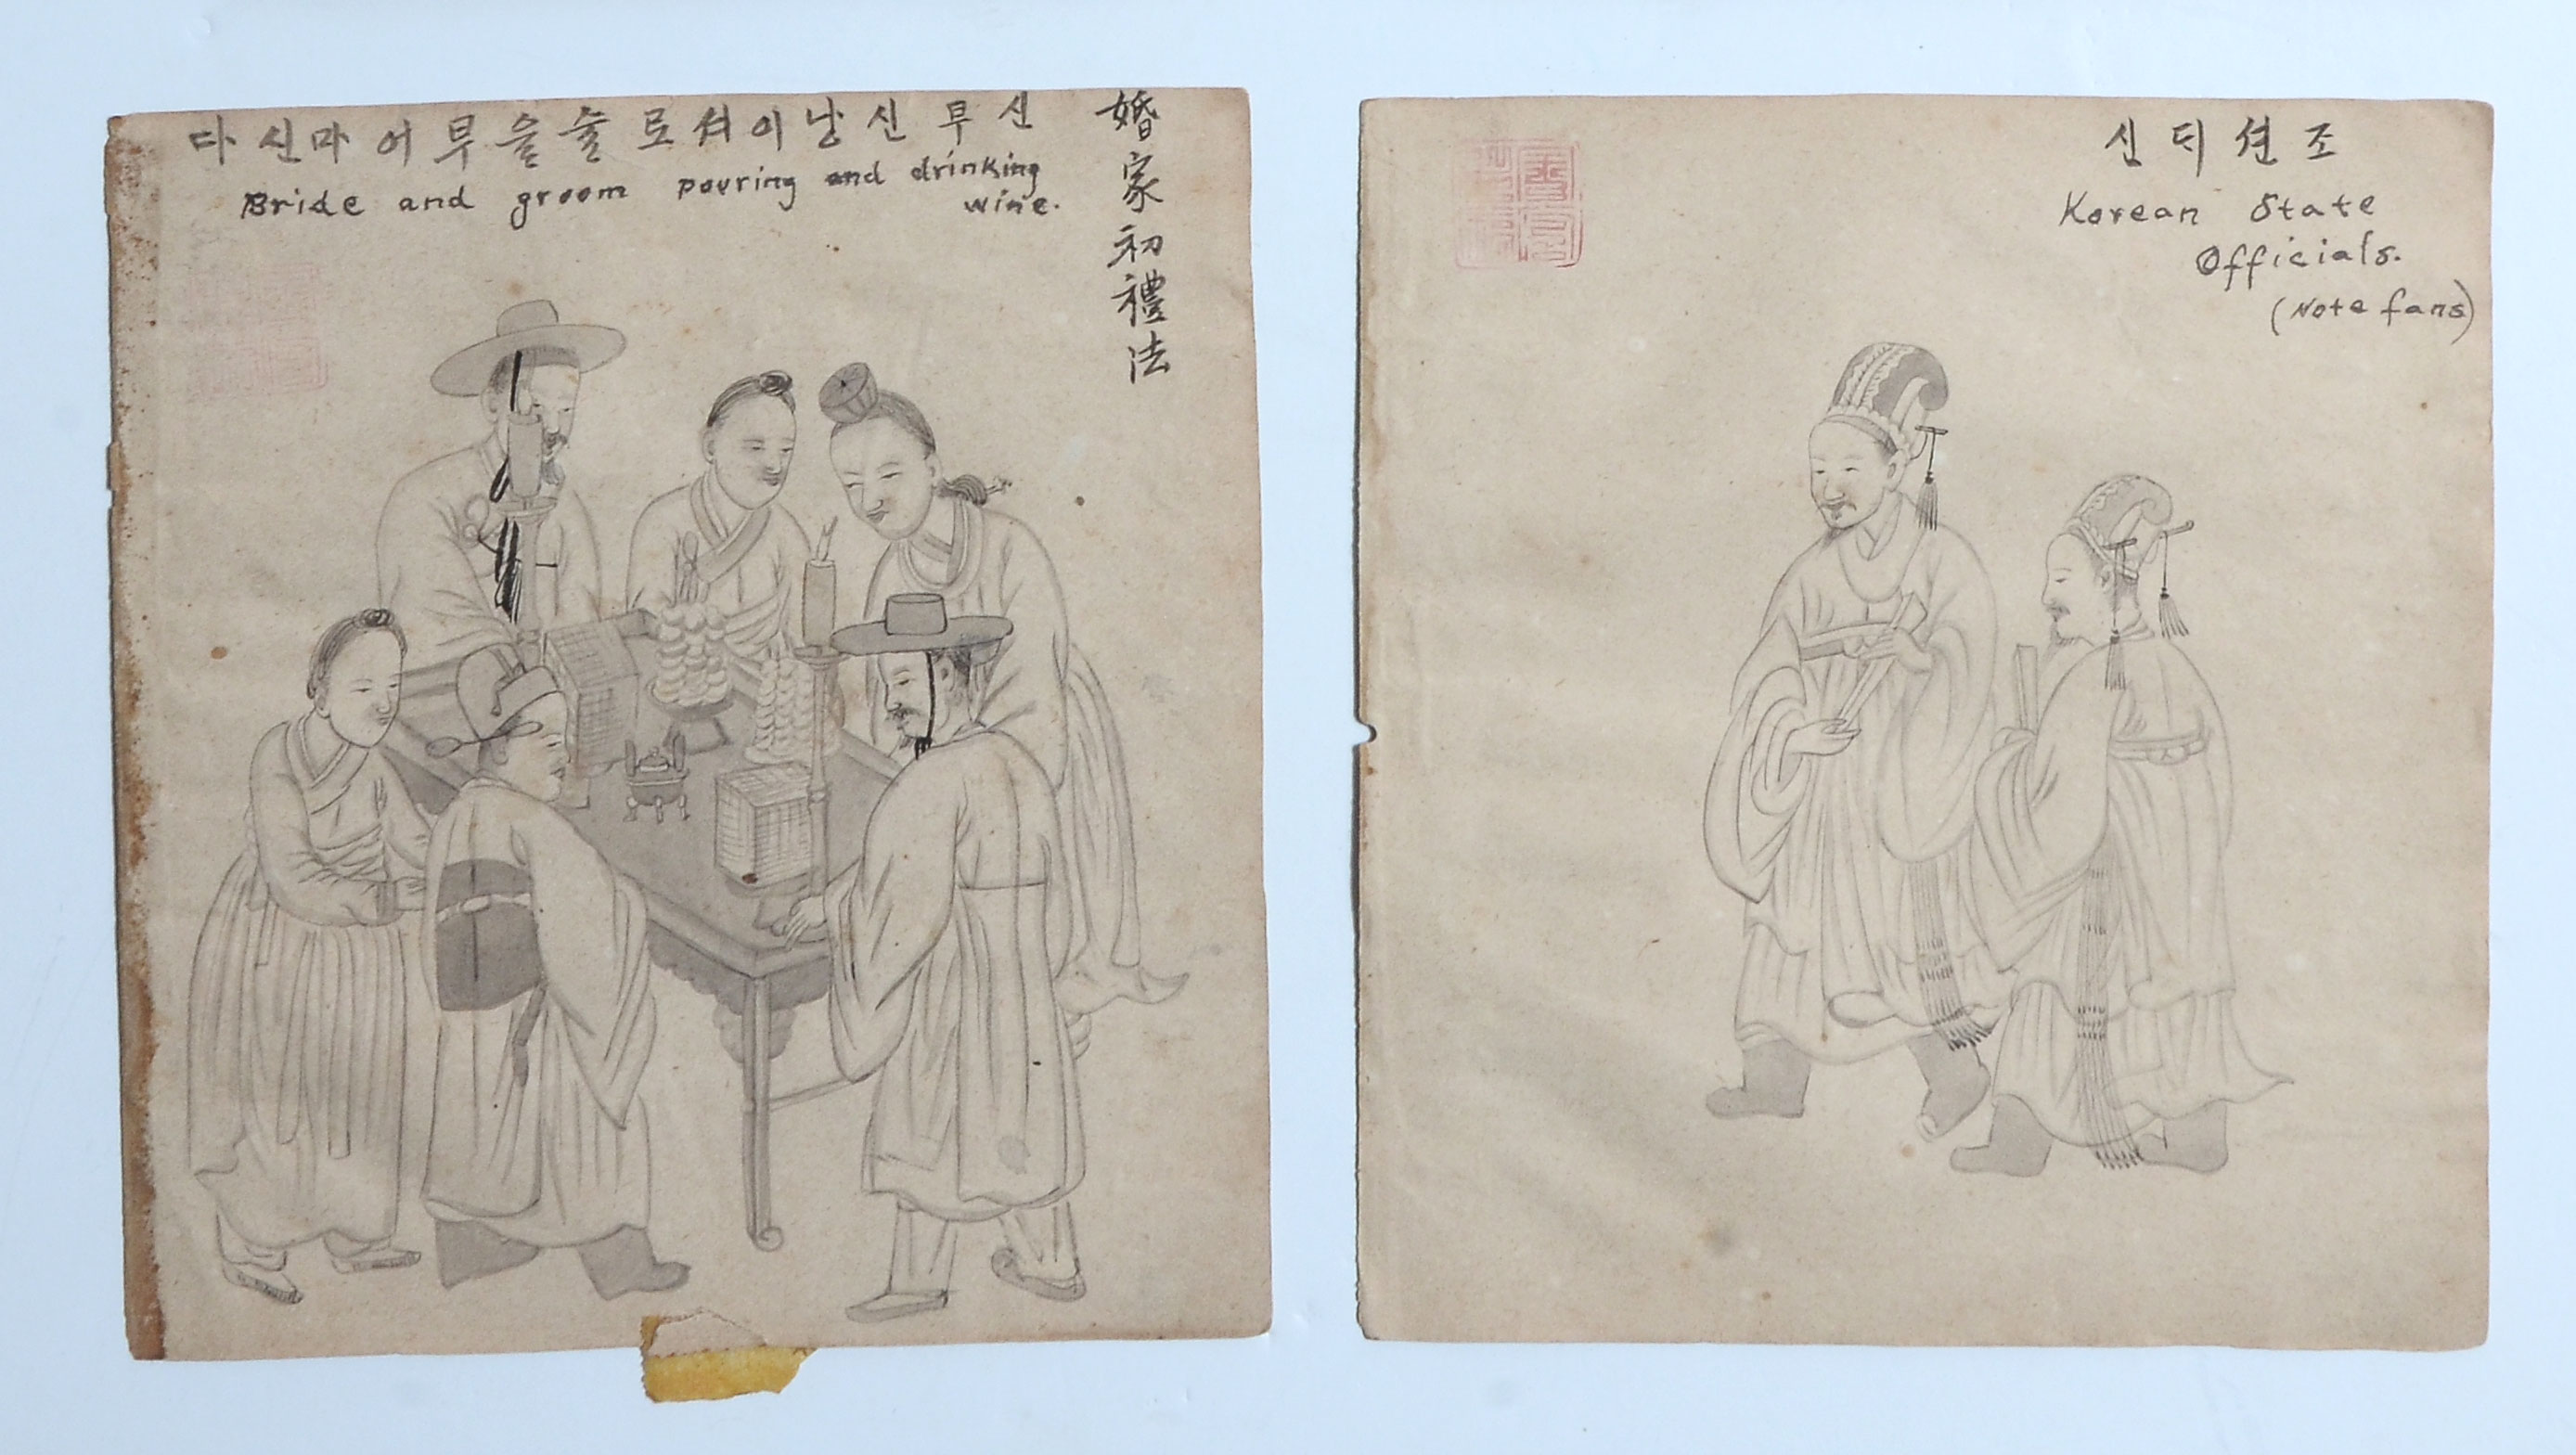 婚家初禮法
신부신낭이셔로술을부어마신다
Bride and groom pouring and drinking
wine.
조션ᄃᆡ신
Korean State
Officials.
(Note fans)